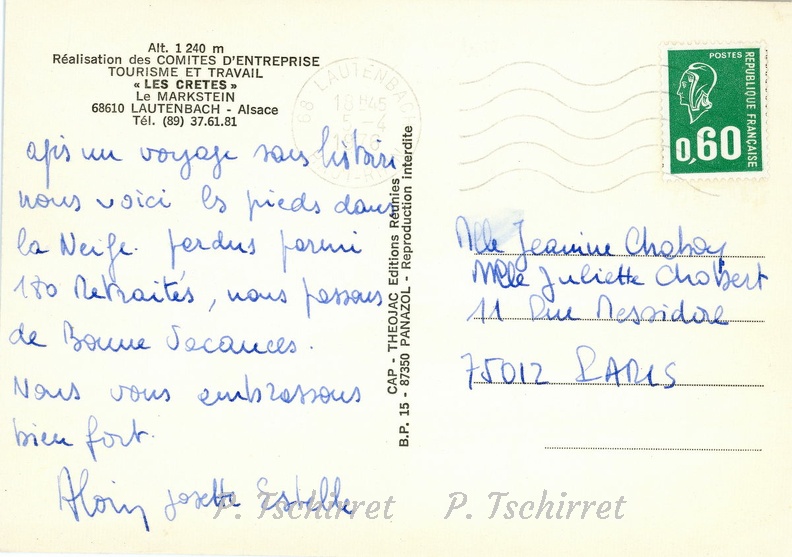 Alt. 1 240 m
Réalisation des COMITES D'ENTREPRISE
TOURISME ET TRAVAIL
« LES CRETES »
Le MARKSTEIN
68610 LAUTENBACH - Alsace
Tél. (89) 37.61.81
apis un voyage sans histoire
nous voici les pieds dans
la Neige. perdus parmi
180 Retraités, nous passons
de Bonne Vacances.
Nous vous embrassons
bien fort.
Alain Josette Estelle
CAP - THEOJAC Editions Réunies
B.P. 15 - 87350 PANAZOL - Reproduction interdite
68 LAUTENBACH
18 H45
5 - 4
POSTES
REPUBLIQUE FRANÇAISE
0,60
Mlle Jeanine Chabay
Mlle Juliette Chobert
11 Rue Messidore
75012 PARIS
P. Tschirret P. Tschirret